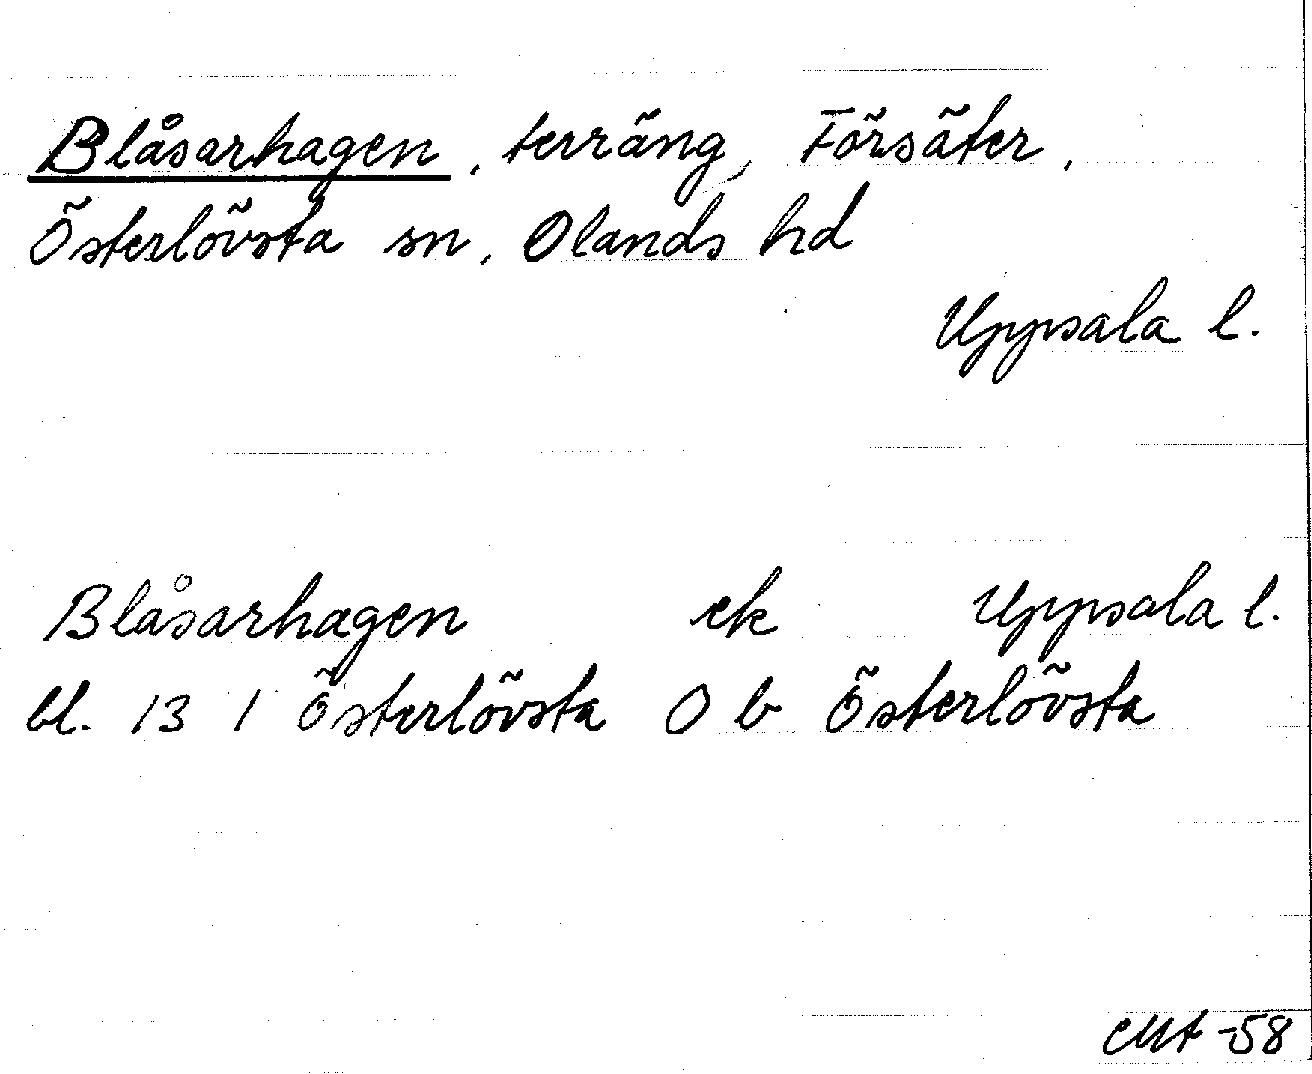 Blåsarhagen, terräng, Försäter,
Österlövsta sn, Olands hd
Uppsala l.
Blåsarhagen ek Uppsala l.
bl. 13 1 Österlövsta O b Österlövsta
-58